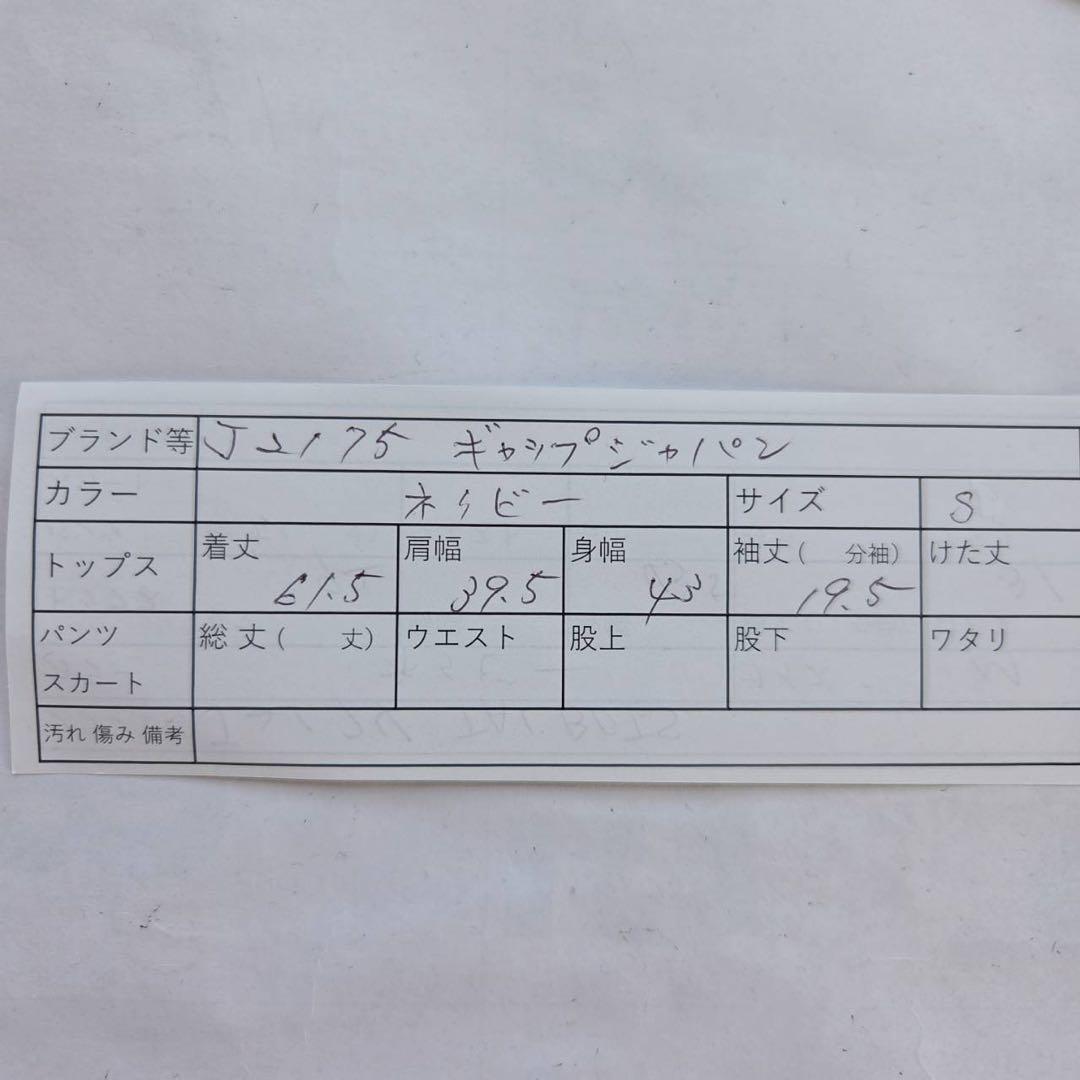 ブランド等 J2175 ギャップジャパン
カラー ネイビー サイズ S
トップス 着丈 61.5 肩幅 39.5 身幅 43 袖丈( 分袖) 19.5 けた丈
パンツ スカート 総丈( 丈) ウエスト 股上 股下 ワタリ
汚れ 傷み 備考